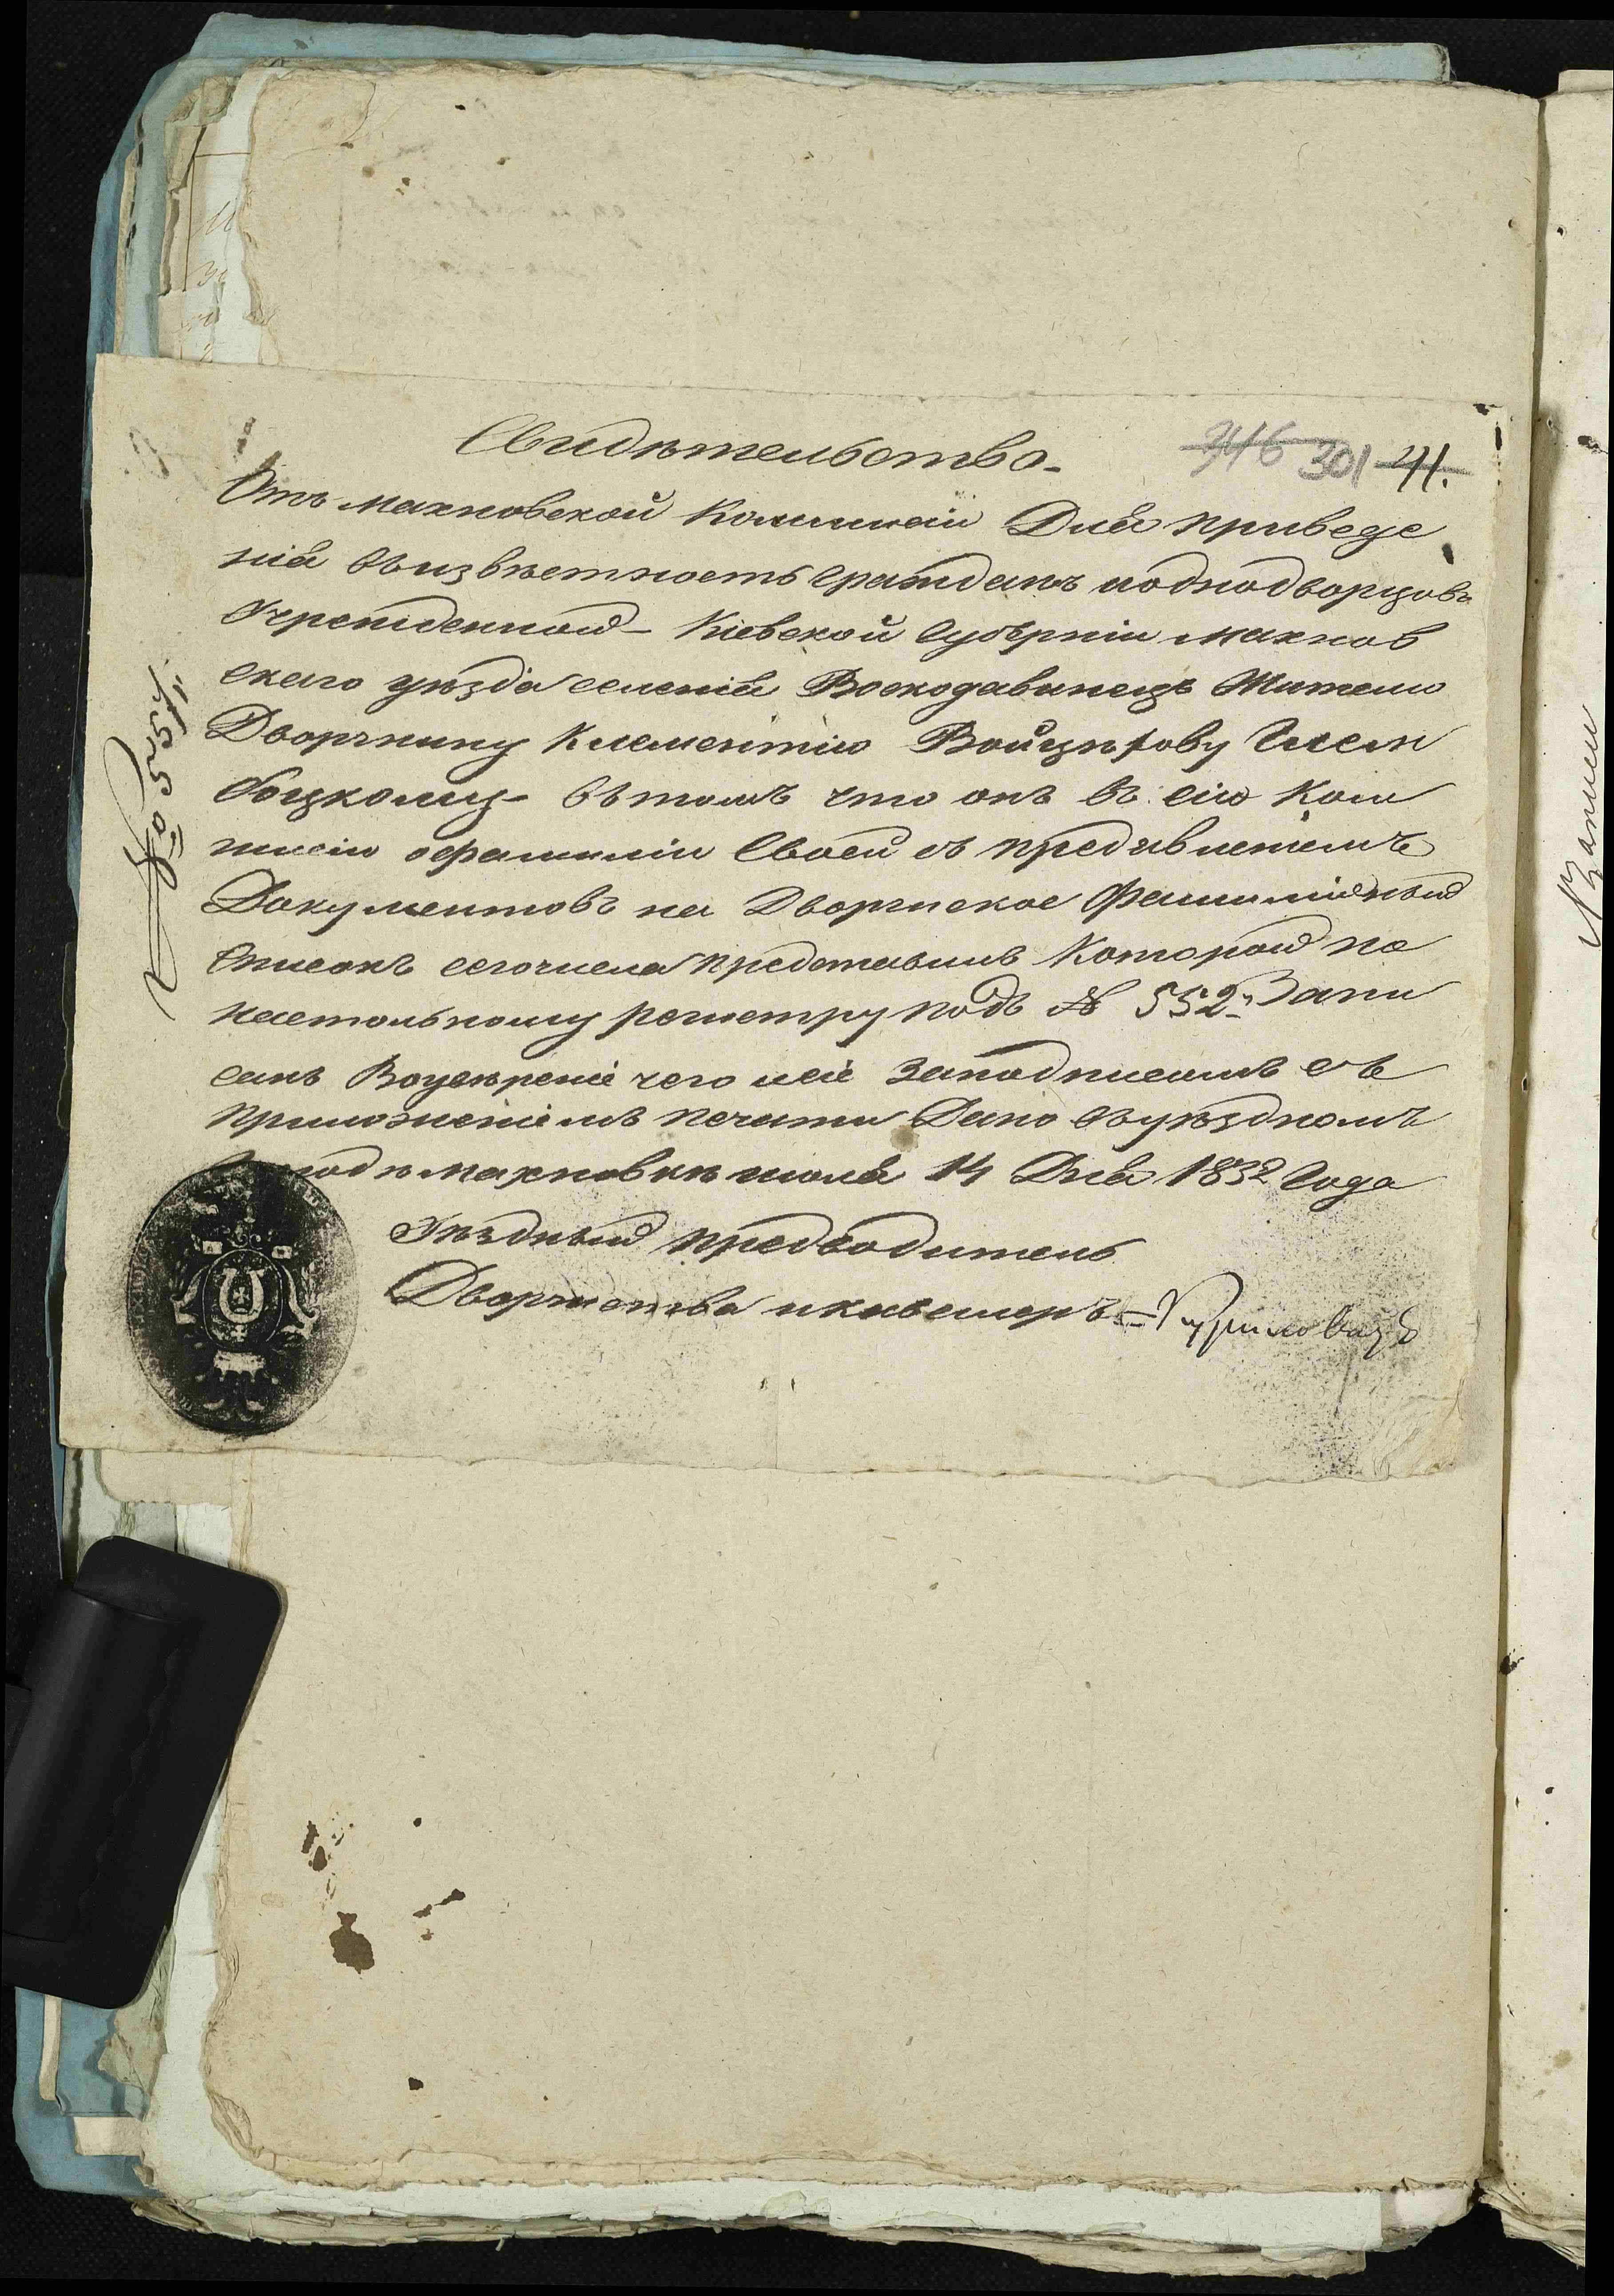 Свидѣтельство.
346 301 41.
Отъ Махновской Коммисіи Для приведе
нія въизвѣстность гражданъ иоднодворцовъ
Учрежденной – Кіевской Губерніи Махнов
скаго уѣзда селенія Воскодавинецъ Жителю
Дворянину Клементію Войцѣхову
въ томъ что онъ въ сію Ком
мисію офамиліи Своей съ предявленіемъ
Документовъ на Дворянское Фамилійный
Списокъ сегочисла представилъ Которой по
настольному регистру подъ № 552. Запи
санъ Воувѣреніе чего сіе заподписомъ съ
приложеніемъ печати Дано въуѣздномъ
Городѣ Махновкѣ июля 14 Дня 1832 Года
Уѣздный предводитель
Дворянства икавалеръ
№ 552